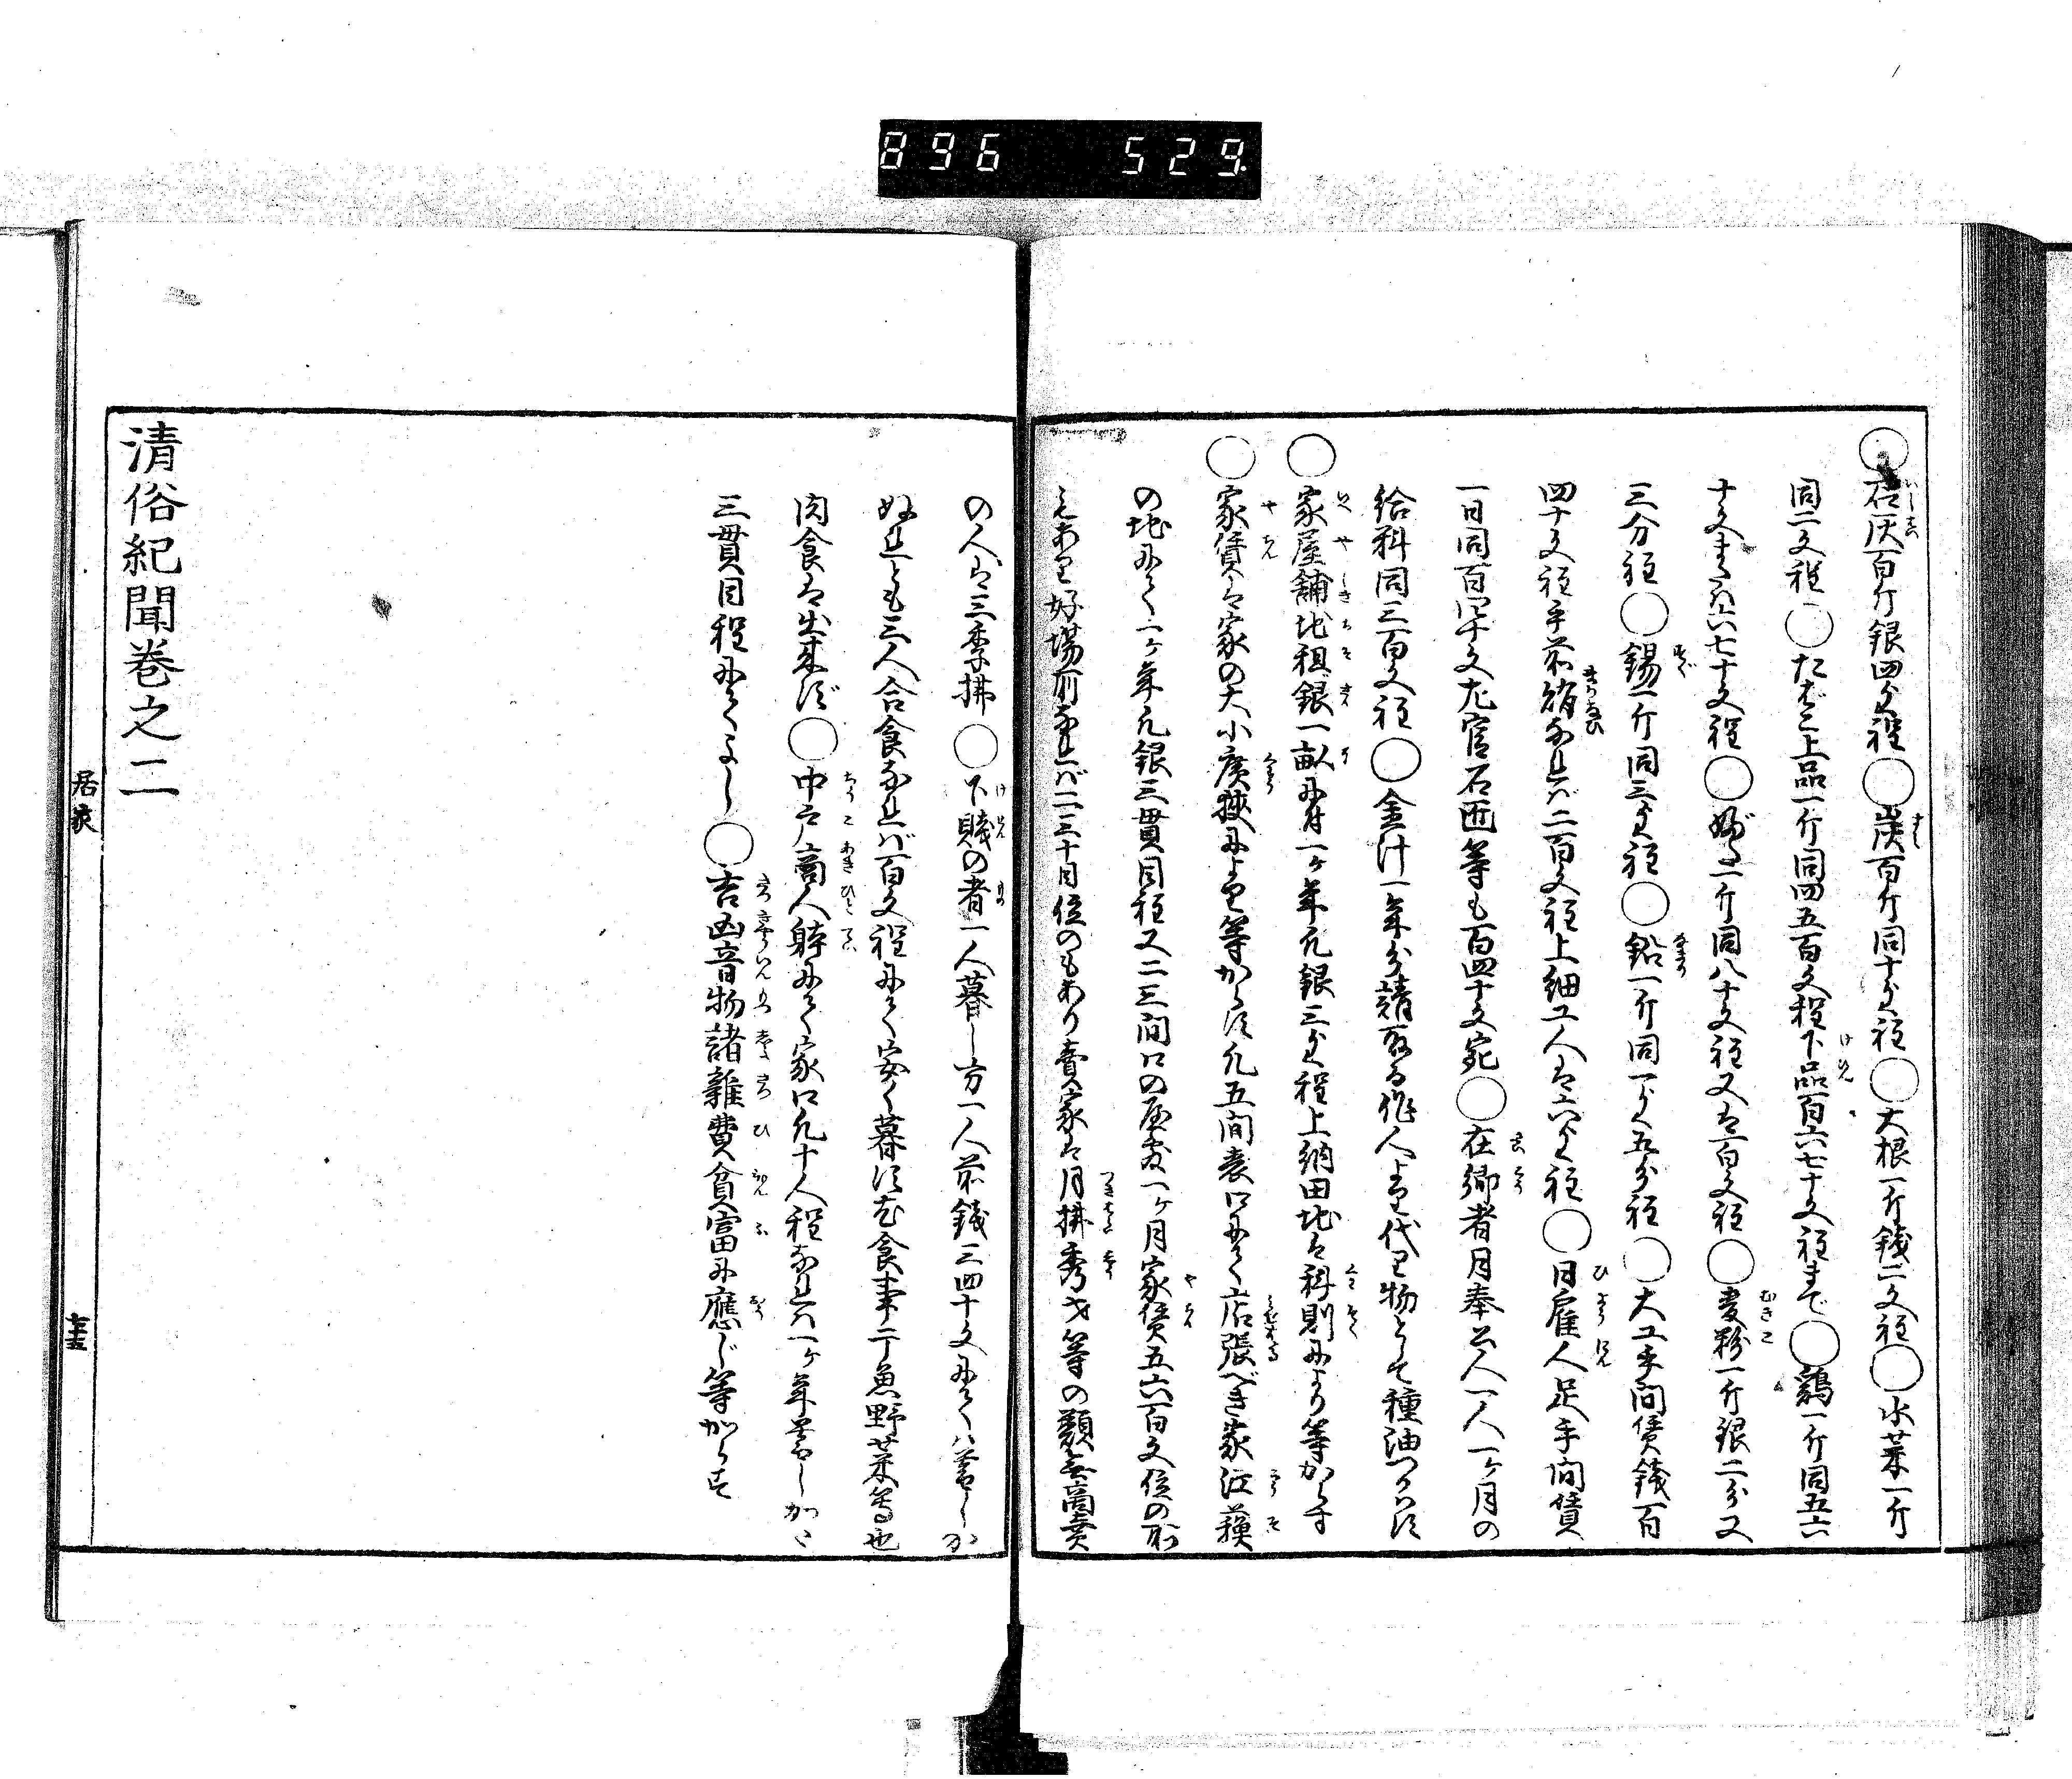 896 529
○石灰百斤銀四匁程○炭百斤同十匁程○大根一斤銭二文程○水菜一斤
同二文程○たばこ上品一斤同四五百文程下品百六七十文程まで○鶏一斤同五六
十文または六七十文程○一斤同八十文程又は百文程○麦粉一斤銀二分又
三分程○錫一斤同三匁程○鉛一斤同一匁五分程○大工手間賃銭百
四十文程手前賄なれば二百文程上細工人は六匁程○日雇人足手間賃
一日同百四十文尤官石匠等も百四十文宛○在郷者月奉公人一人一ヶ月の
給料同三百文程○金汁一年分請取る作人より代り物として種油つかはす
○家屋舗地租銀一畝に付一ヶ年凡銀三匁程上納田地は科則により等からず
○家賃は家の大小廣狭により等からず凡五間表口にて店張べき家江蘓
の地にて一ヶ年凡銀三貫目程又二三間口の屋敷一ヶ月家賃五六百文位の所
もあり好場所なれば二三十目位のもあり賣家は月拂秀才等の類無商賣
の人は三季拂○下賤の者一人暮し方一人前銭三四十文にては暮しか
ぬれども三人合食なれば百文程にて安く暮す尤食事干魚野菜等也
肉食は出来ず○中戸商人躰にて家口凡十人程なれば一ヶ年暮しかた
三貫目程にてよし○吉凶音物諸雑費貧富に應じ等からず
清俗紀聞巻之二
居家
七十五